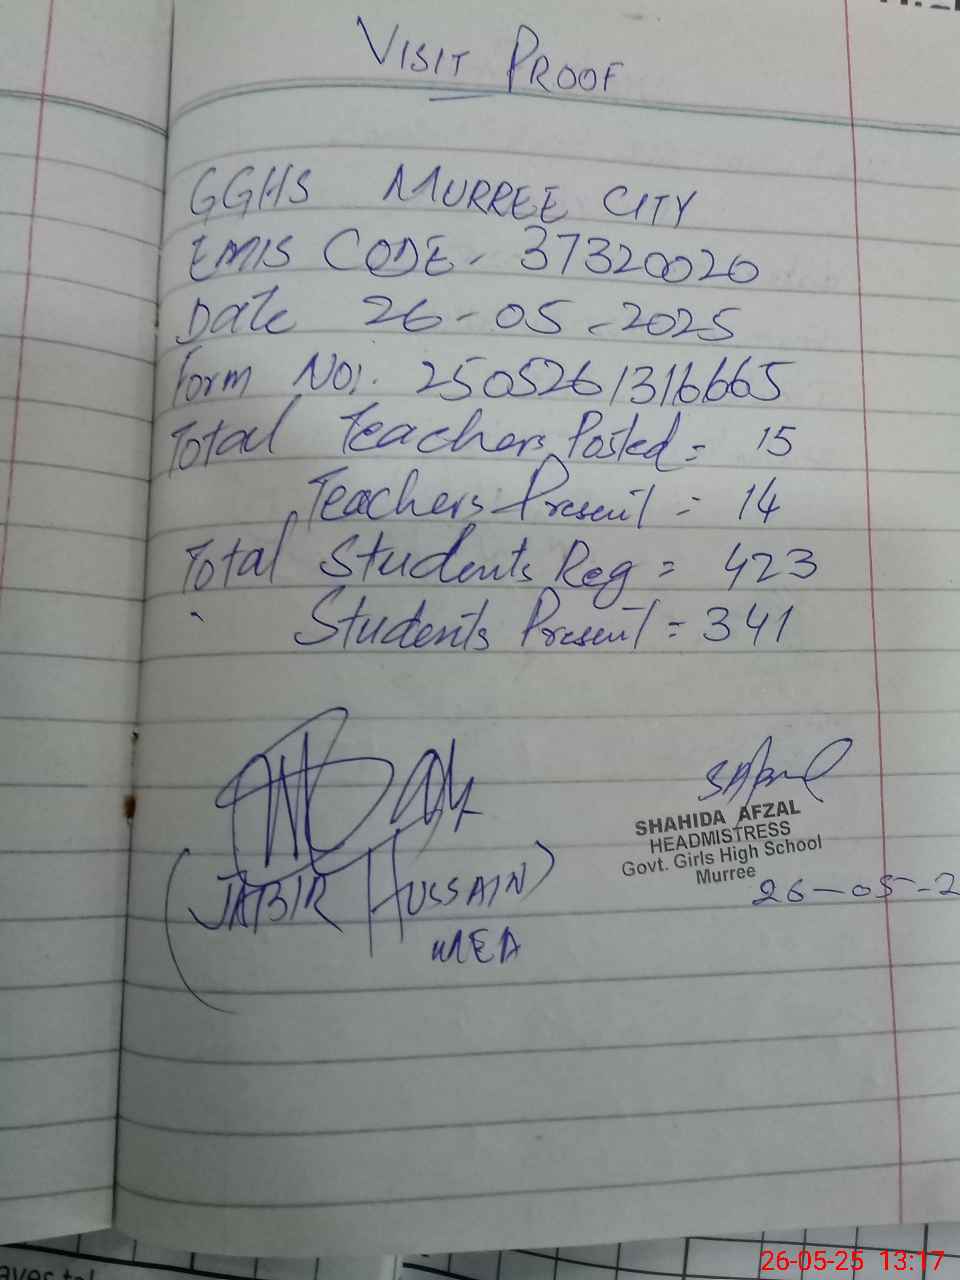 VISIT PROOF
GGHS MURREE CITY
EMIS CODE- 37320020
Date 26-05-2025
Form No:. 2505261316665
Total Teachers Posted = 15
Teachers Present = 14
Total Students Reg = 423
Students Present = 341
SHAHIDA AFZAL
HEADMISTRESS
Govt. Girls High School
Murree
26-05-2
(JABIR HUSSAIN)
MEA
26-05-25 13:17